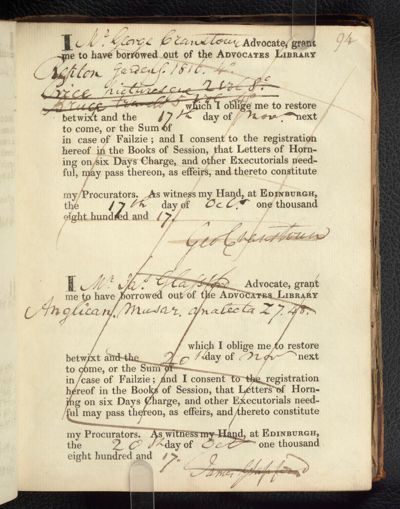 94
I Mr. George Cranstoun Advocate, grant
me to have borrowed out of the ADVOCATES LIBRARY
Repton Gardens. 1816. 4o.
Price Picturesque 2 vol 8o.
Bruce Travels
which I oblige me to restore
betwixt and the 17th day of Novr. next
to come, or the Sum of
in case of Failzie; and I consent to the registration
hereof in the Books of Session, that Letters of Horn-
ing on six Days Charge, and other Executorials need-
ful, may pass thereon, as effeirs, and thereto constitute
my Procurators. As witness my Hand, at EDINBURGH,
the 17th day of Octr. one thousand
eight hundred and 17.
Geo Cranstoun
I Mr. Jas. Glassford Advocate, grant
me to have borrowed out of the ADVOCATES LIBRARY
Anglican. Musar. Analecta 2 7. 48.
which I oblige me to restore
betwixt and the 20th day of Novr next
to come, or the Sum of
in case of Failzie; and I consent to the registration
hereof in the Books of Session, that Letters of Horn-
ing on six Days Charge, and other Executorials need-
ful may pass thereon, as effeirs, and thereto constitute
my Procurators. As witness my Hand, at EDINBURGH,
the 20th day of Octr one thousand
eight hundred and 17.
James Glassford